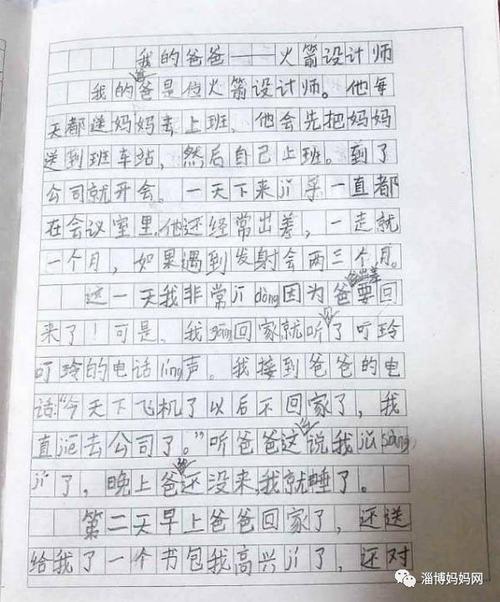 我的爸爸——火箭设计师
我的爸是位火箭设计师。他每
天都送妈妈去上班、他会先把妈妈
送到班车站，然后自己上班。到了
公司就开会。一天下来jī乎一直都
在会议室里，他还经常出差，一走就
一个月，如果遇到发射会两三个月。
这一天我非常jī dòng因为爸要回
来了！可是、我gāng回家就听了叮玲
叮玲的电话líng声。我接到爸爸的电
话“今天下飞机了以后不回家了，我
直jiē去公司了。”听爸爸这说我
了，晚上爸还没来，我就睡了。
第二天早上爸爸回家了，还送
给我了一个书包我高兴jí了，还对
淄博妈妈网